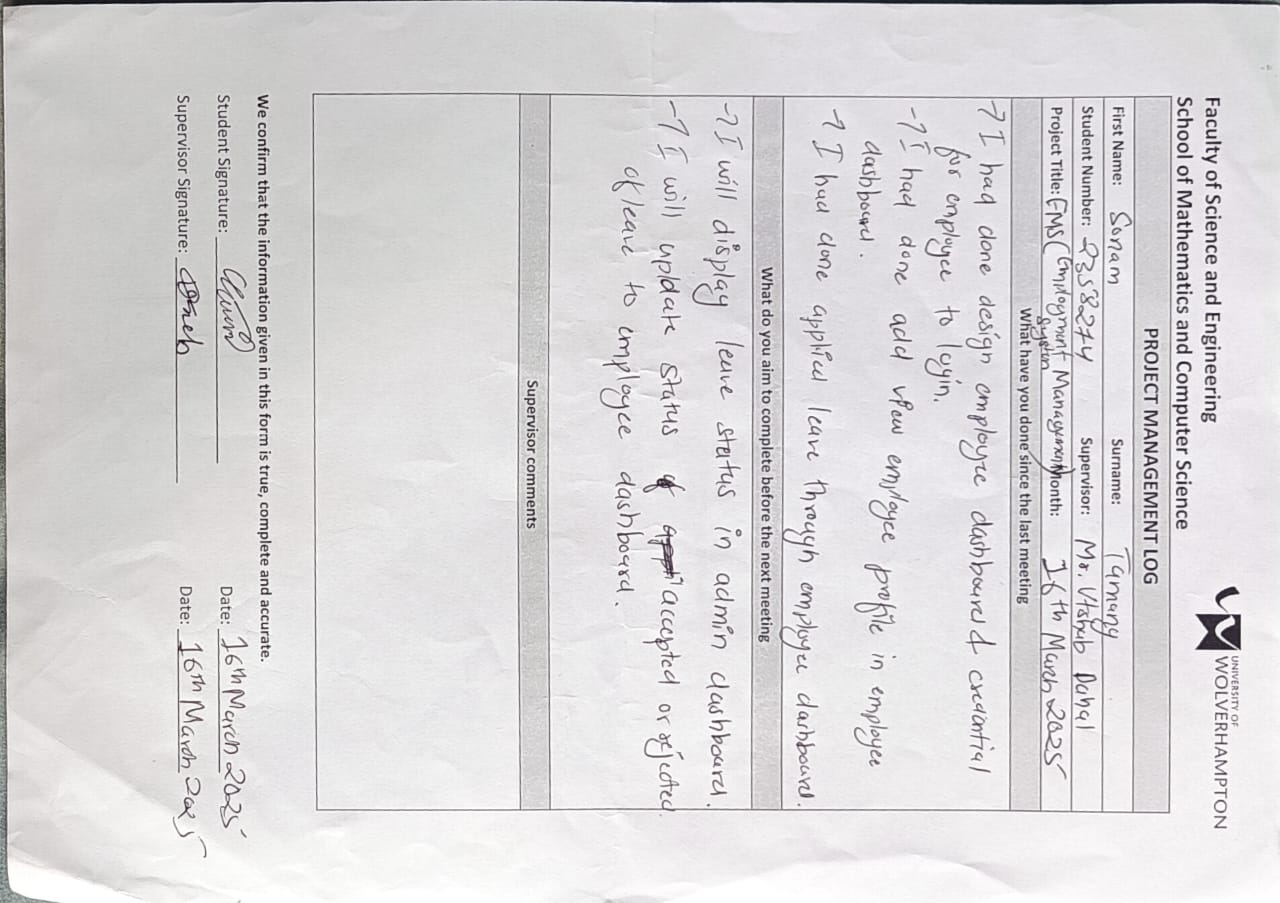 Faculty of Science and Engineering
School of Mathematics and Computer Science
UNIVERSITY OF
WOLVERHAMPTON
PROJECT MANAGEMENT LOG
First Name: Sonam Surname: Tamang
Student Number: 2358274 Supervisor: Mr. Utshab Dahal
Project Title: EMS (Employment Management System) Month: 16th March 2025
What have you done since the last meeting
→ I had done design employee dashboard & credential
for employee to login.
→ I had done add view employee profile in employee
dashboard.
→ I had done applied leave through employee dashboard.
What do you aim to complete before the next meeting
→ I will display leave status in admin dashboard.
→ I will update status of accepted or rejected
of leave to employee dashboard.
Supervisor comments
We confirm that the information given in this form is true, complete and accurate.
Student Signature: Date: 16th March 2025
Supervisor Signature: Date: 16th March 2025